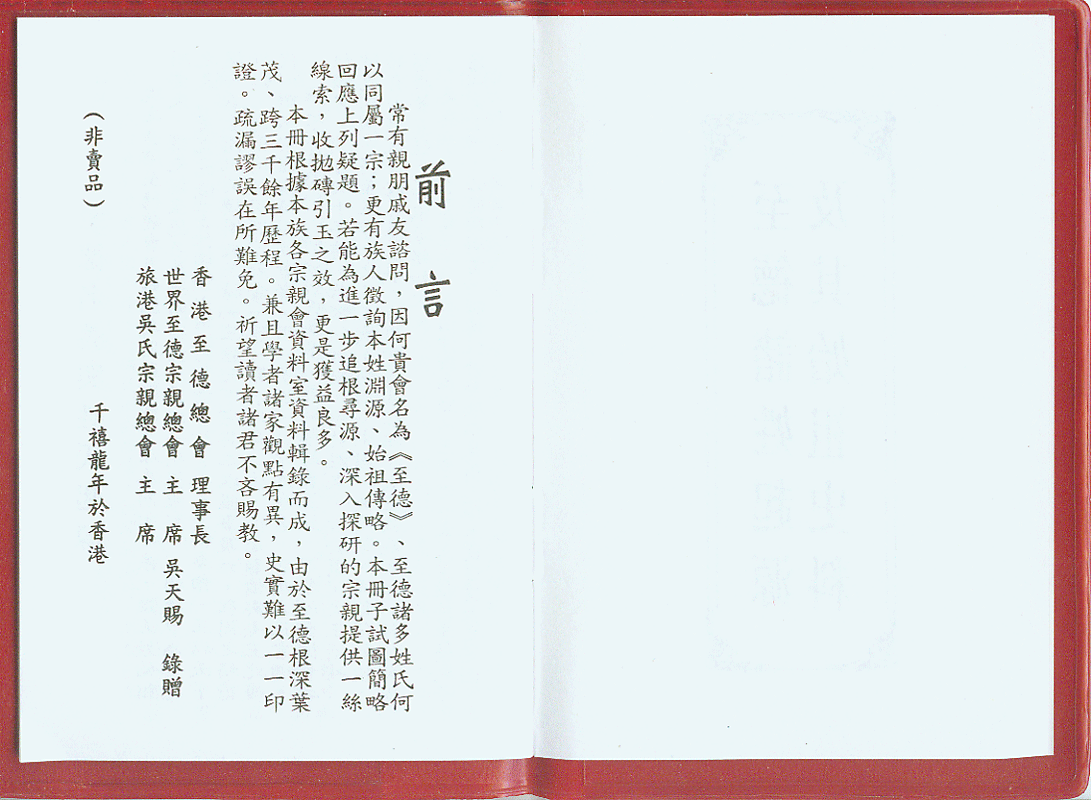 前言
常有親朋戚友諮問，因何貴會名為《至德》、至德諸多姓氏何
以同屬一宗；更有族人徵詢本姓淵源、始祖傳略。本冊子試圖簡略
回應上列疑題。若能為進一步追根尋源、深入探研的宗親提供一絲
線索，收拋磚引玉之效，更是獲益良多。
本冊根據本族各宗親會資料室資料輯錄而成，由於至德根深葉
茂、跨三千餘年歷程。兼且學者諸家觀點有異，史實難以一一印
證。疏漏謬誤在所難免。祈望讀者諸君不吝賜教。
香港至德總會 理事長
世界至德宗親總會 主席 吳天賜 錄贈
旅港吳氏宗親總會 主席
千禧龍年於香港
（非賣品）